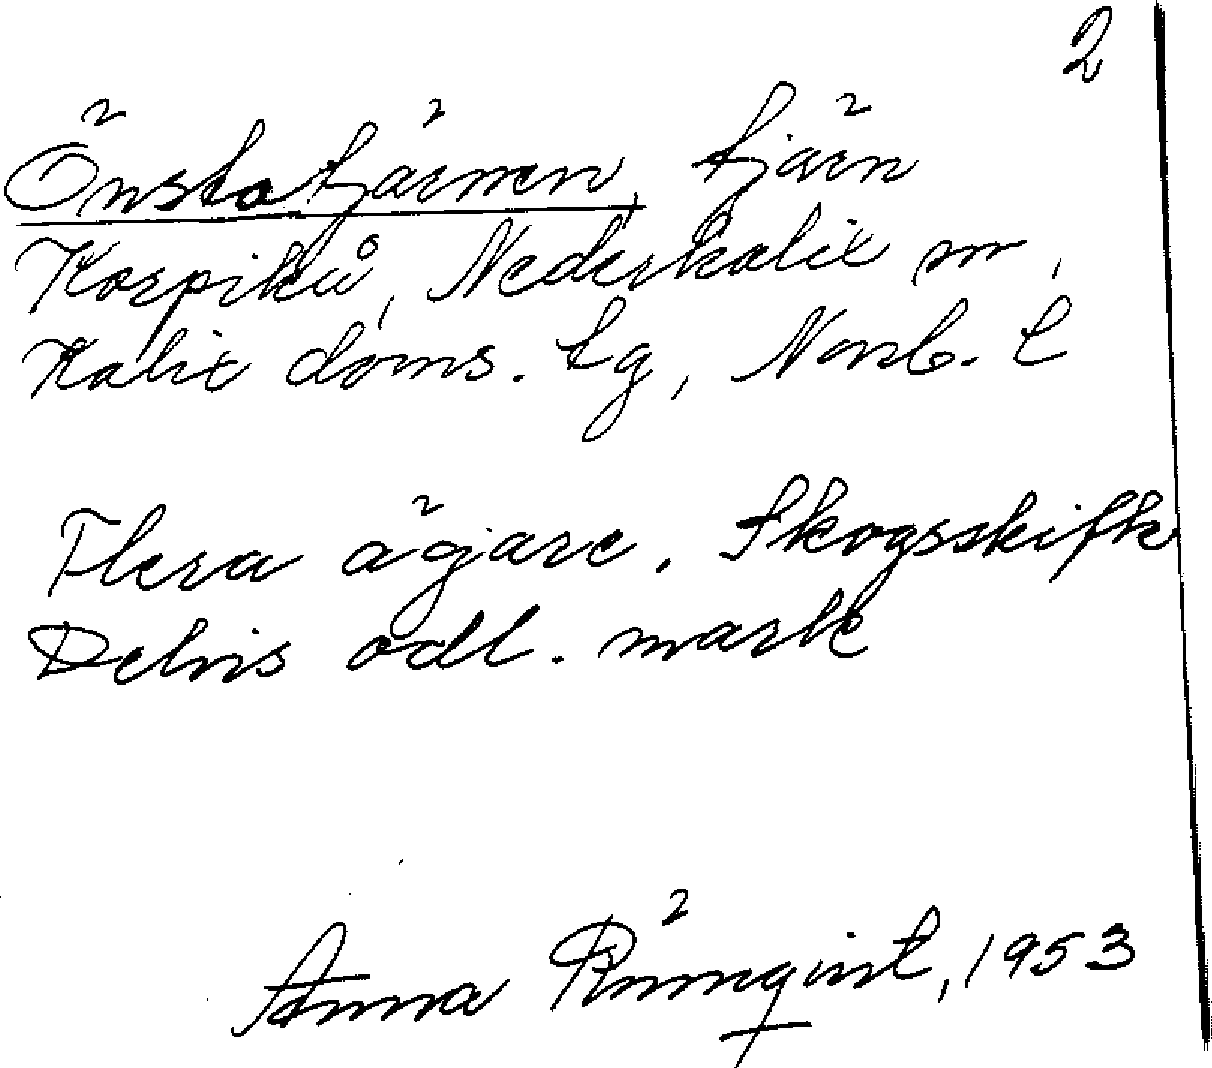 2
Önstatjärnen, tjärn
Korpikå, Nederkalix sn,
Kalix doms. tg, Norrb. l
Flera ägare. Skogsskifte
Delvis odl. mark
Anna Rönnqvist, 1953